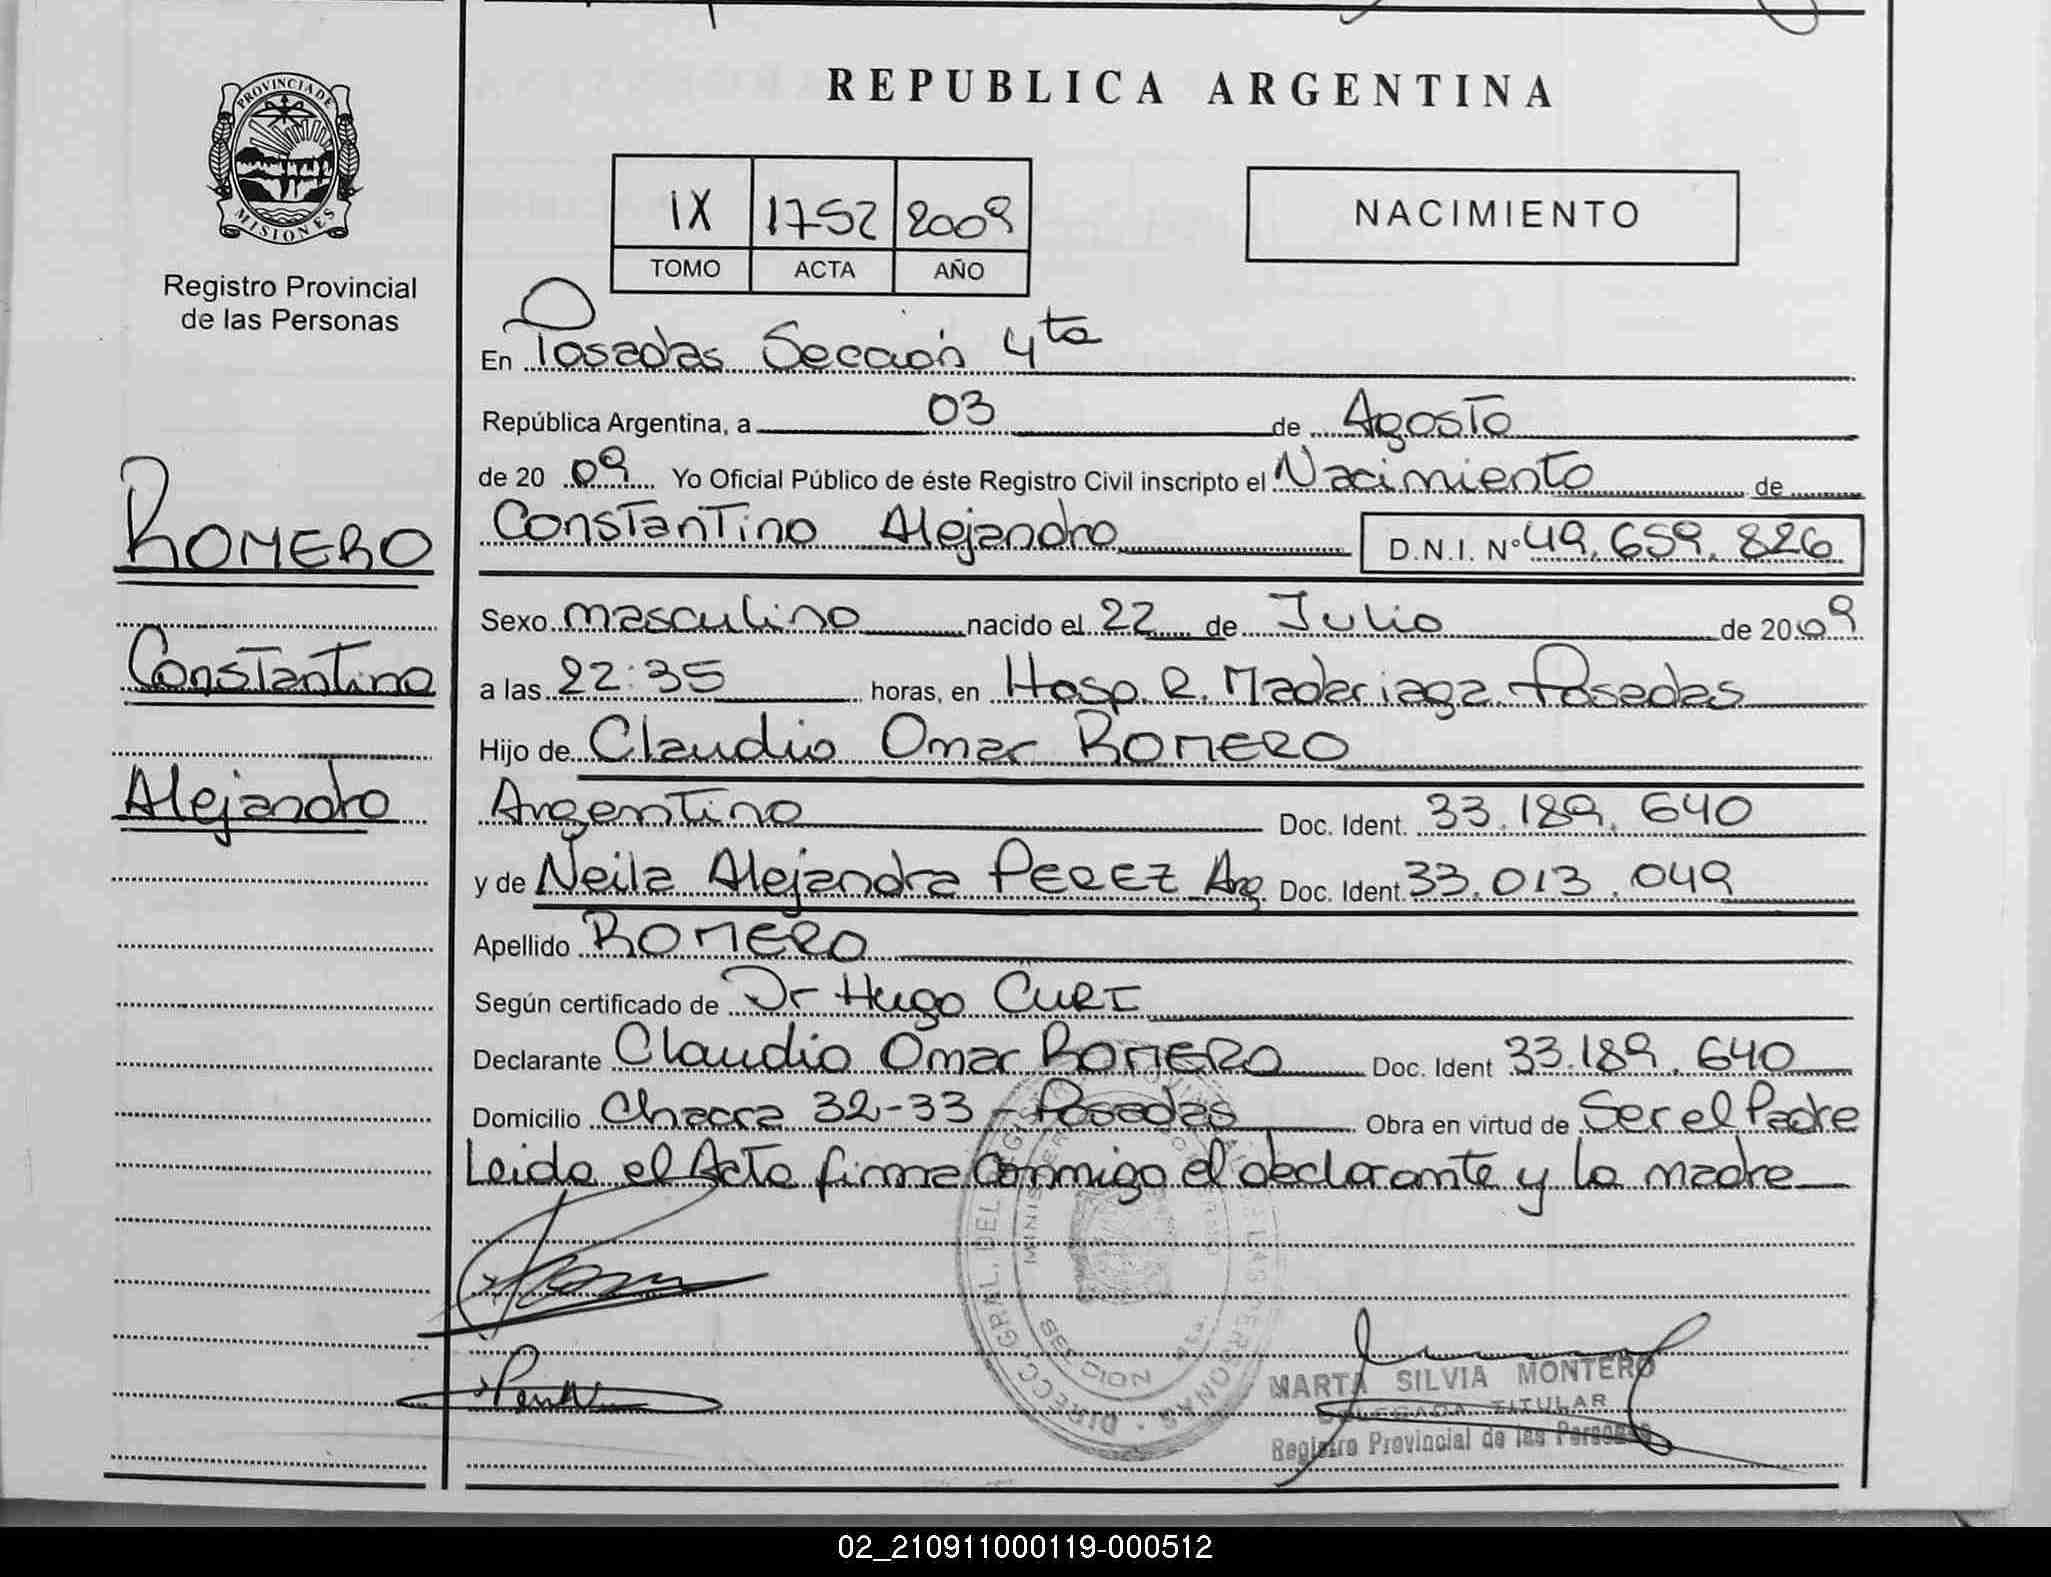 REPUBLICA ARGENTINA
PROVINCIA DE
MISIONES
Registro Provincial
de las Personas
IX 1752 2009
TOMO ACTA AÑO
NACIMIENTO
En Posadas Sección 4ta
República Argentina, a 03 de Agosto
de 20 09 Yo Oficial Público de éste Registro Civil inscripto el Nacimiento de
Constantino Alejandro D.N.I. Nº 49.659.826
ROMERO
Constantino
Alejandro
Sexo masculino nacido el 22 de Julio de 2009
a las 22:35 horas, en Hosp. R. Madariaga Posadas
Hijo de Claudio Omar ROMERO
Argentino Doc. Ident. 33.189.640
y de Neila Alejandra PEREZ Arg. Doc. Ident. 33.013.049
Apellido ROMERO
Según certificado de Dr Hugo CURI
Declarante Claudio Omar ROMERO Doc. Ident 33.189.640
Domicilio Chacra 32-33 - Posadas Obra en virtud de Ser el Padre
Leida el Acta firma conmigo el declarante y la madre
MARTA SILVIA MONTERO
DELEGADA TITULAR
Registro Provincial de las Personas
02_210911000119-000512